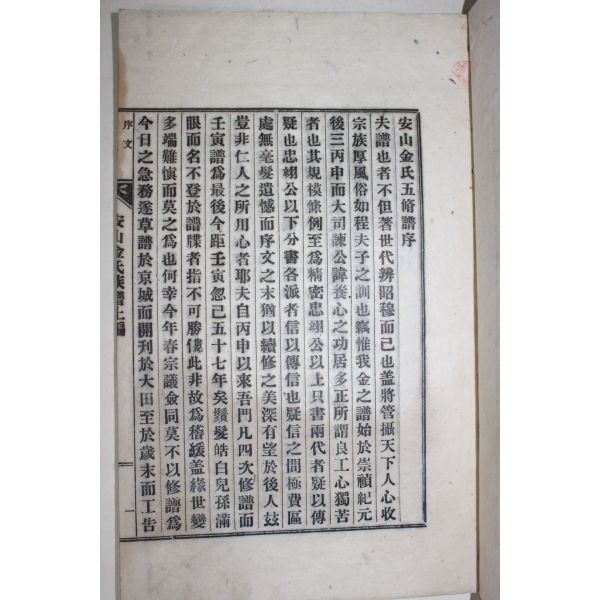 安山金氏五脩譜序
夫譜也者不但著世代辨昭穆而已也盖將管攝天下人心收
宗族厚風俗如程夫子之訓也竊惟我金之譜始於崇禎紀元
後三丙申而大司諫公諱養心之功居多正所謂良工心獨苦
者也其規模條例至爲精密忠翊公以上只書兩代者疑以傳
疑也忠翊公以下分書各派者信以傳信也疑信之間極費區
處無毫髮遺憾而序文之末猶以續修之美深有望於後人玆
豈非仁人之所用心者耶夫自丙申以來吾門凡四次修譜而
壬寅譜爲最後今距壬寅忽己五十七年矣鬚髮皓白兒孫滿
眼而名不登於譜牒者指不可勝僂此非故爲稽緩盖緣世變
多端難愼而莫之爲也何幸今年春宗議僉同莫不以修譜爲
今日之急務遂草譜於京城而開刋於大田至於歲末而工告
序文
安山金氏族譜上編
一